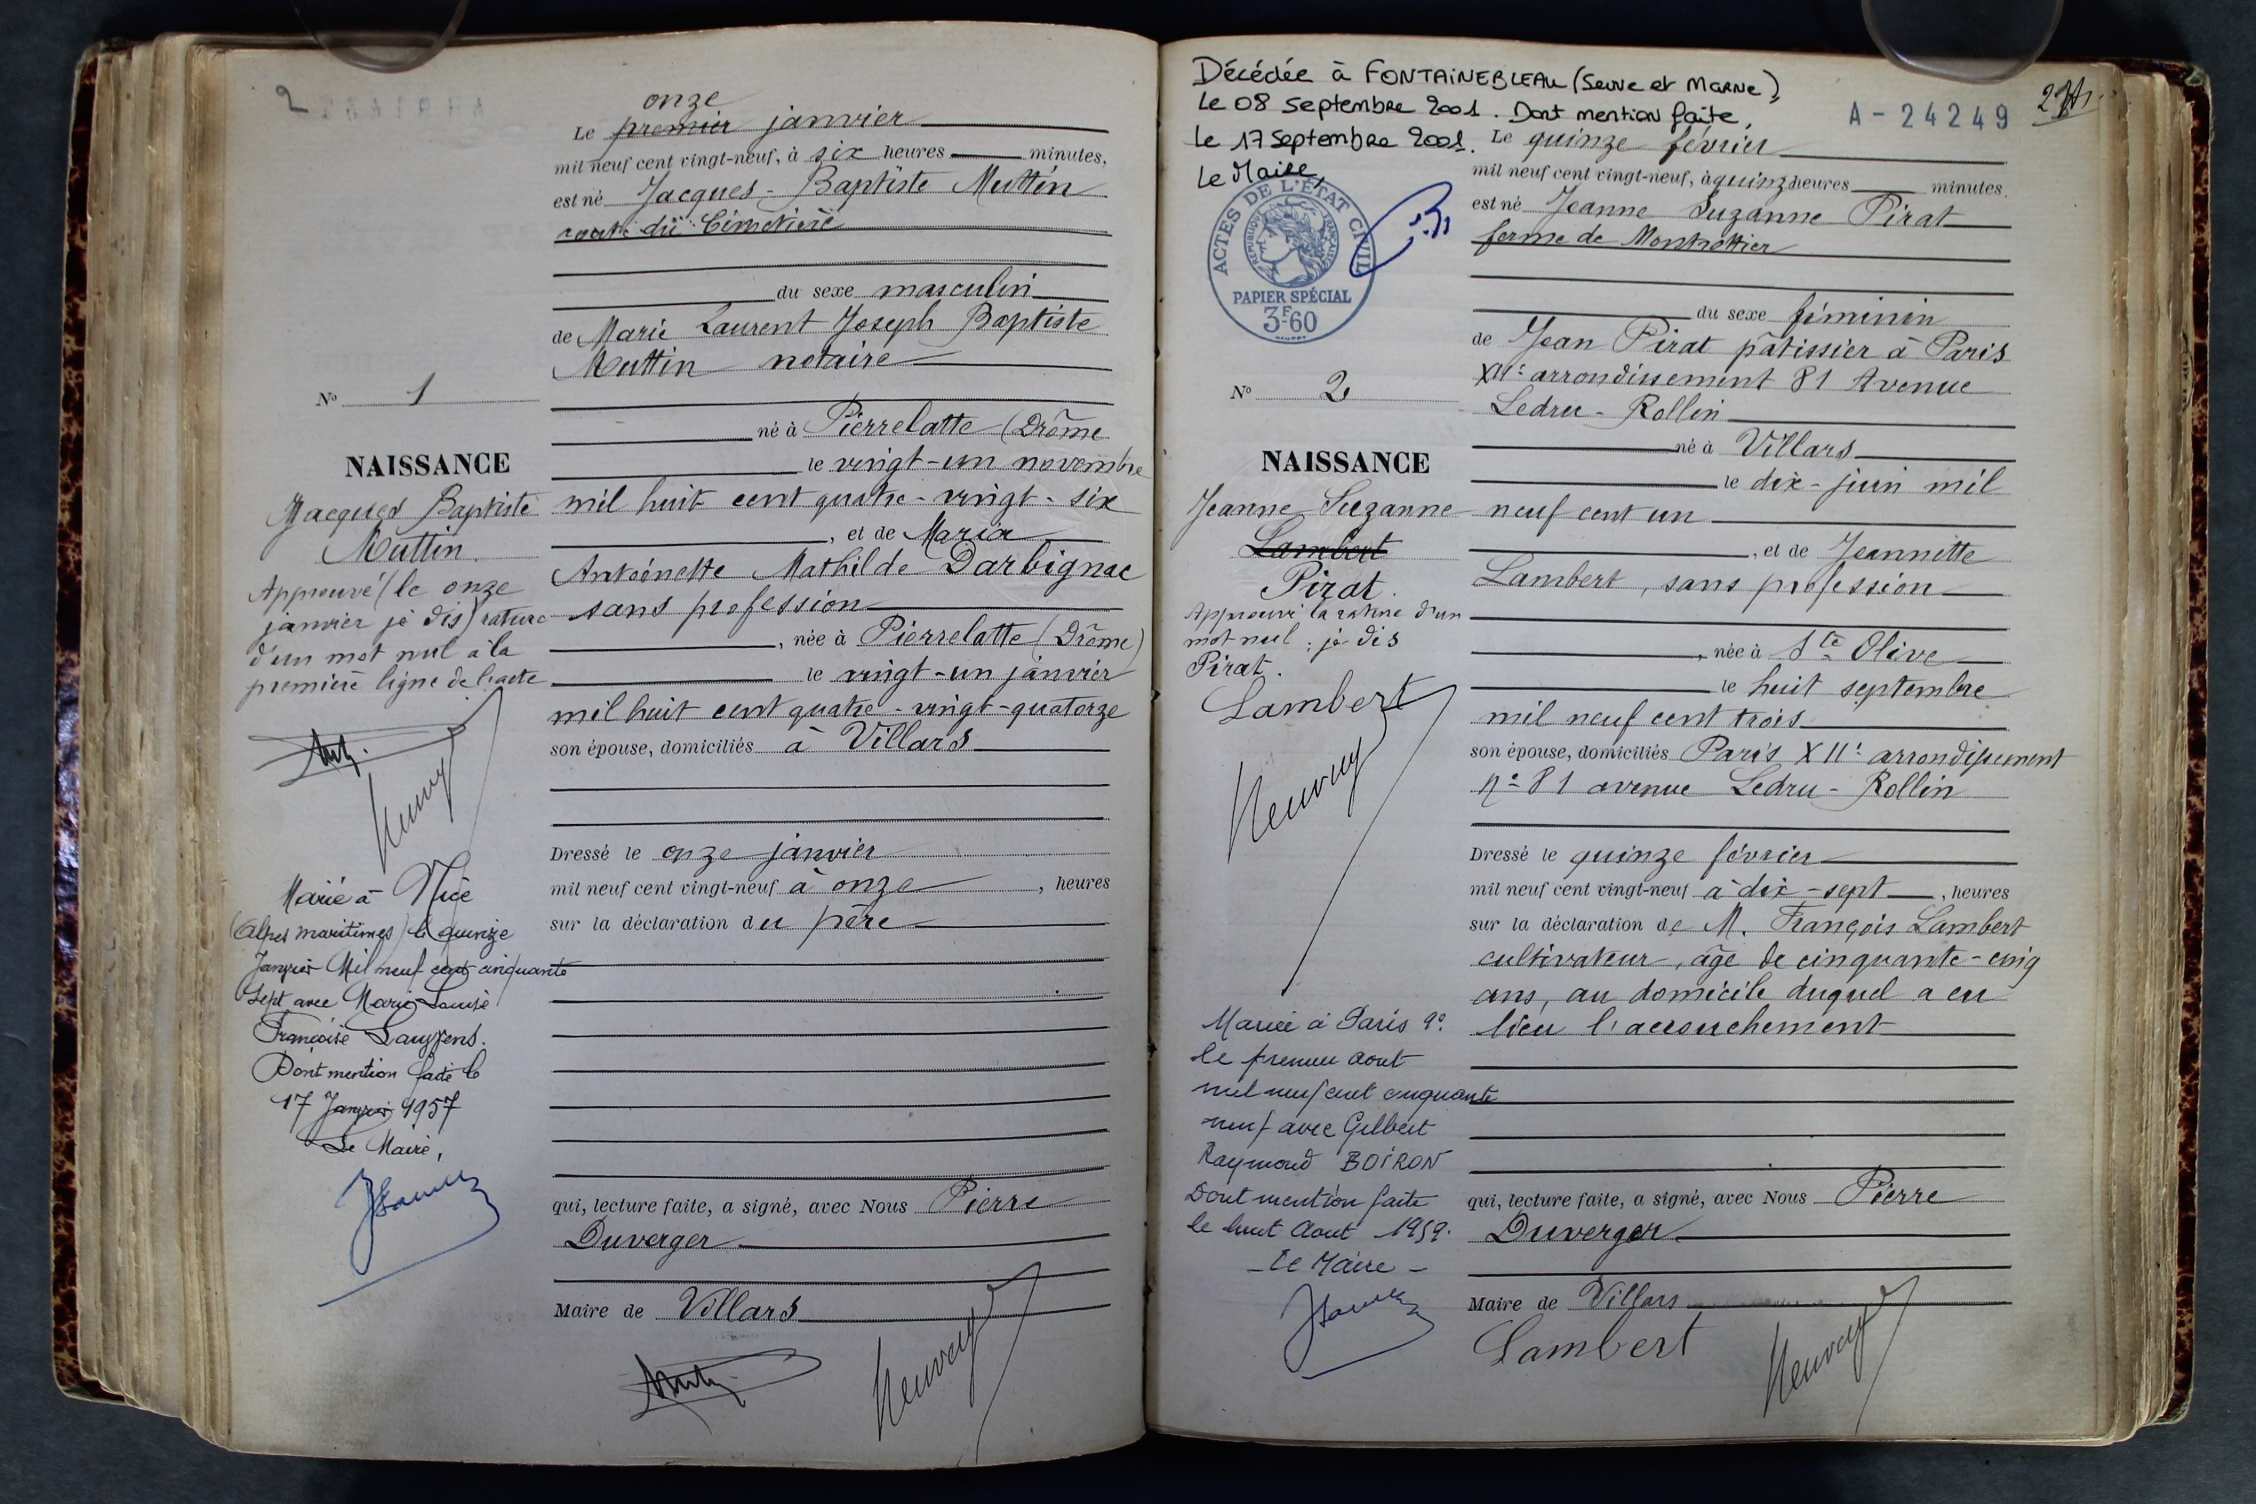 2
onze
Le premier janvier
mil neuf cent vingt-neuf, à six heures minutes,
est né Jacques-Baptiste Muttin
route du Cimetière
du sexe masculin
de Marie Laurent Joseph Baptiste
Muttin notaire
né à Pierrelatte (Drôme
le vingt-un novembre
mil huit cent quatre-vingt-six
, et de Maria
Antoinette Mathilde Darbignac
sans profession
, née à Pierrelatte (Drôme)
le vingt-un janvier
mil huit cent quatre-vingt-quatorze
son épouse, domiciliés à Villars
Dressé le onze janvier
mil neuf cent vingt-neuf à onze , heures
sur la déclaration du père
qui, lecture faite, a signé, avec Nous Pierre
Duverger
Maire de Villars
No 1
NAISSANCE
Jacques Baptiste
Muttin.
Approuvé (le onze
janvier je dis) rature
d'un mot nul à la
première ligne de l'acte
Marié à Nice
(Alpes maritimes) le quinze
Janvier Mil neuf cent cinquante
sept avec Marie-Louise
Françoise
Dont mention faite le
17 Janvier 1957
Le Maire,
Décédée à FONTAINEBLEAU (Seine et Marne),
Le 08 septembre 2001. Dont mention faite,
Le 17 Septembre 2001.
Le Maire,
A-24249
ACTES DE L'ÉTAT CIVIL
RÉPUBLIQUE FRANÇAISE
PAPIER SPÉCIAL
3F60
Le quinze février
mil neuf cent vingt-neuf, à quinze heures minutes.
est né Jeanne Suzanne Pirat
ferme de Montrottier
du sexe féminin
de Jean Pirat pâtissier à Paris
XIIe arrondissement 81 Avenue
Ledru-Rollin
né à Villars
le dix-juin mil
neuf cent un
, et de Jeannette
Lambert, sans profession
, née à Ste Olive
le huit septembre
mil neuf cent trois
son épouse, domiciliés Paris XIIe arrondissement
No 81 avenue Ledru-Rollin
Dressé le quinze février
mil neuf cent vingt-neuf à dix-sept , heures
sur la déclaration de M. François Lambert
cultivateur, âgé de cinquante-cinq
ans, au domicile duquel a eu
lieu l'accouchement
qui, lecture faite, a signé, avec Nous Pierre
Duverger
Maire de Villars
Lambert
No 2
NAISSANCE
Jeanne Suzanne
Lambert
Pirat.
Approuvé la rature d'un
mot nul : je dis
Pirat.
Lambert
Mariée à Paris 9e
le premier aout
mil neuf cent cinquante
neuf avec Gilbert
Raymond BOIRON
Dont mention faite
le huit Aout 1959.
- Le Maire -